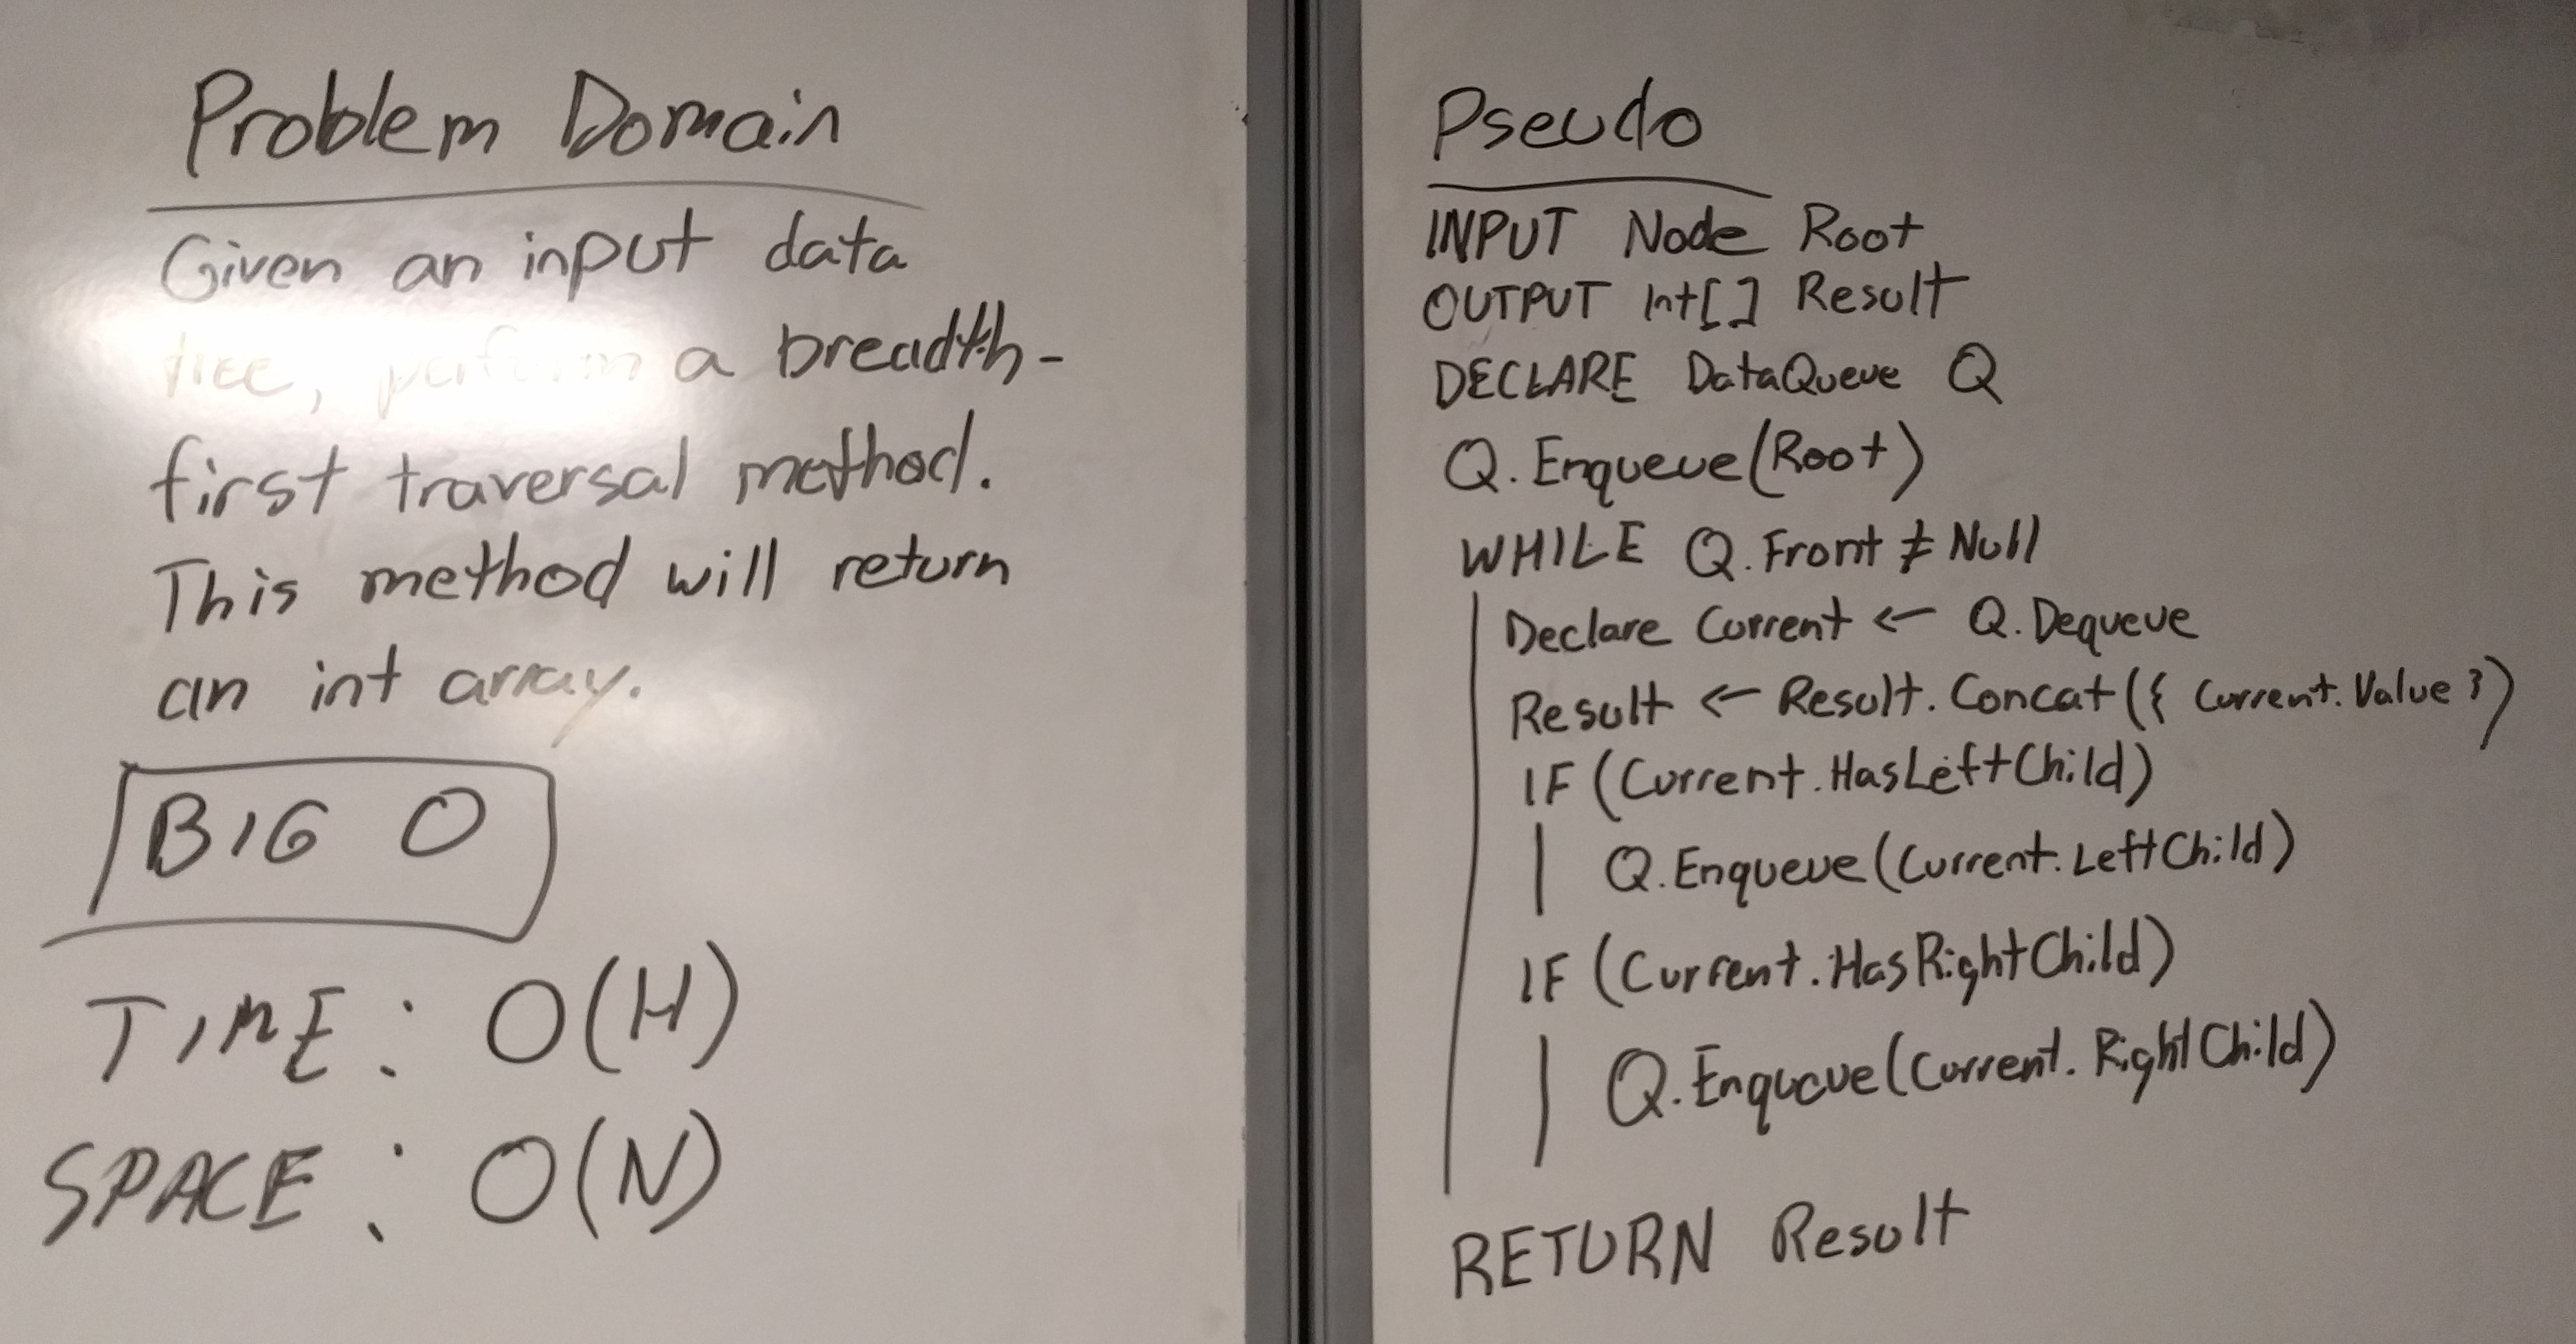 Problem Domain
Given an input data
tree, perform a breadth-
first traversal method.
This method will return
an int array.
BIG O
TIME: O(H)
SPACE: O(N)
Pseudo
INPUT Node Root
OUTPUT Int[] Result
DECLARE DataQueue Q
Q.Enqueue(Root)
WHILE Q.Front ≠ Null
Declare Current ← Q.Dequeue
Result ← Result.Concat({ Current.Value })
IF (Current.HasLeftChild)
Q.Enqueue(Current.LeftChild)
IF (Current.HasRightChild)
Q.Enqueue(Current.RightChild)
RETURN Result